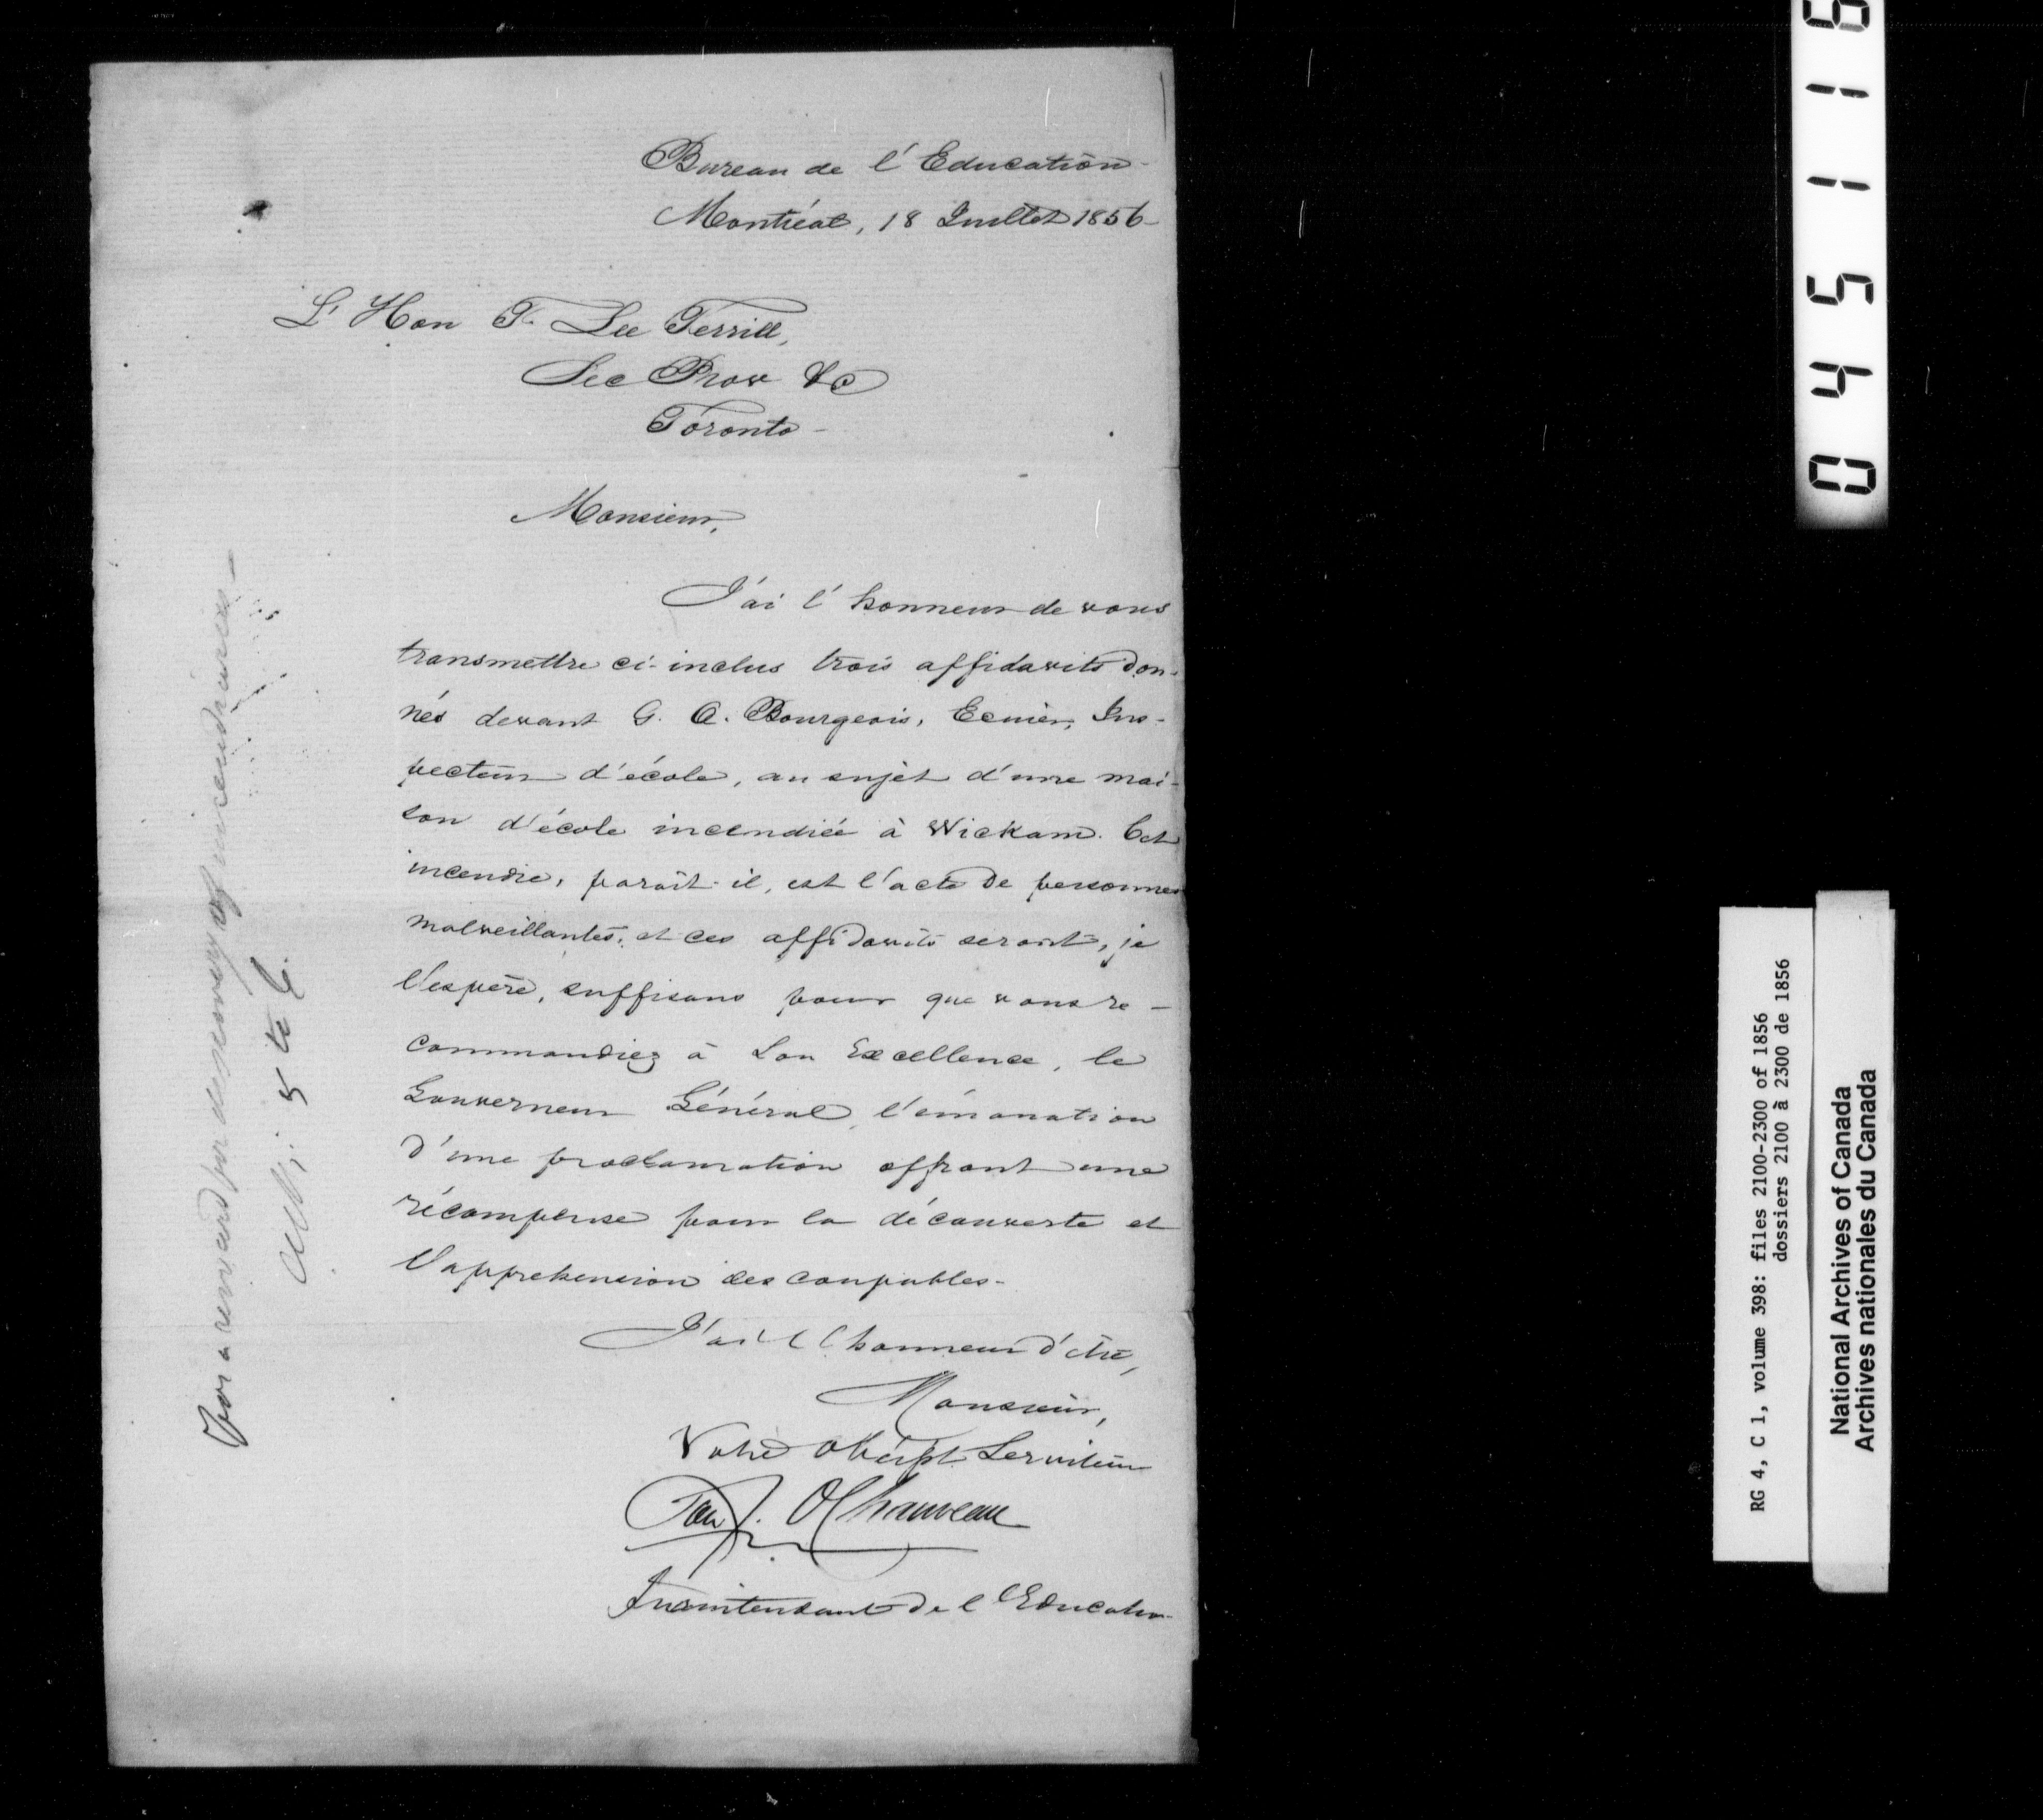 Bureau de l'Education
Montréal, 18 Juillet 1856
L'Hon T. Lee Terrill,
Sec Prov &c
Toronto -
Monsieur,
J'ai l'honneur de vous
transmettre ci-inclus trois affidavits don-
nés devant G. A. Bourgeois, Ecuier, Ins-
pecteur d'école, au sujet d'une mai-
son d'école incendiée à Wickam. Cet
incendie, paraît-il, est l'acte de personnes
malveillantes, et ces affidavits seront, je
l'espère, suffisans pour que vous re-
commandiez à Son Excellence, le
Gouverneur Général, l'émanation
d'une proclamation offrant une
récompense pour la découverte et
l'apprehension des coupables -
J'ai l'honneur d'être,
Monsieur,
Votre obéisst Serviteur
Chauveau
Surintendant de l'Education
For a reward for discovery of incendiaries -
0 4 5 1 1 6
RG 4, C 1, volume 398: files 2100-2300 of 1856
dossiers 2100 à 2300 de 1856
National Archives of Canada
Archives nationales du Canada